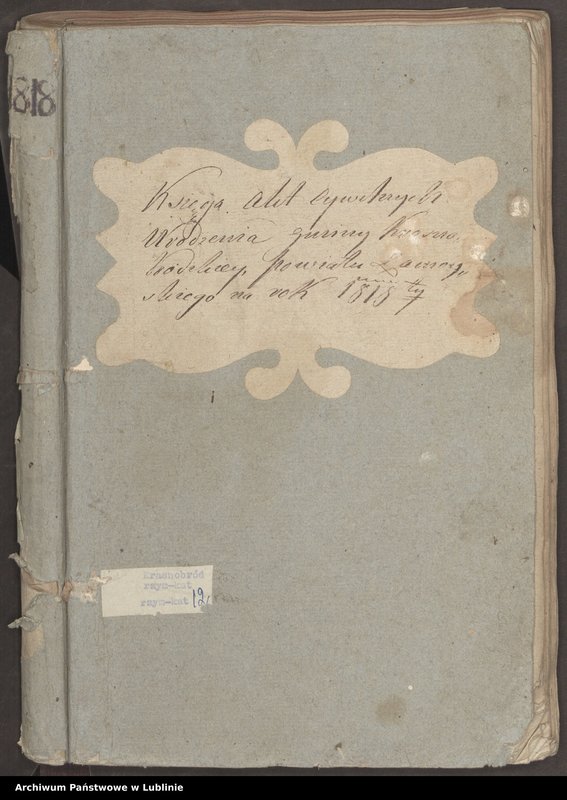 1818
Księga Akt Cywilnych
Urodzenia gminy Krasno-
brodzkiey powiatu Zamoy-
skiego na rok 1818
Krasnobród
rzym-kat
rzym-kat 19
Archiwum Państwowe w Lublinie